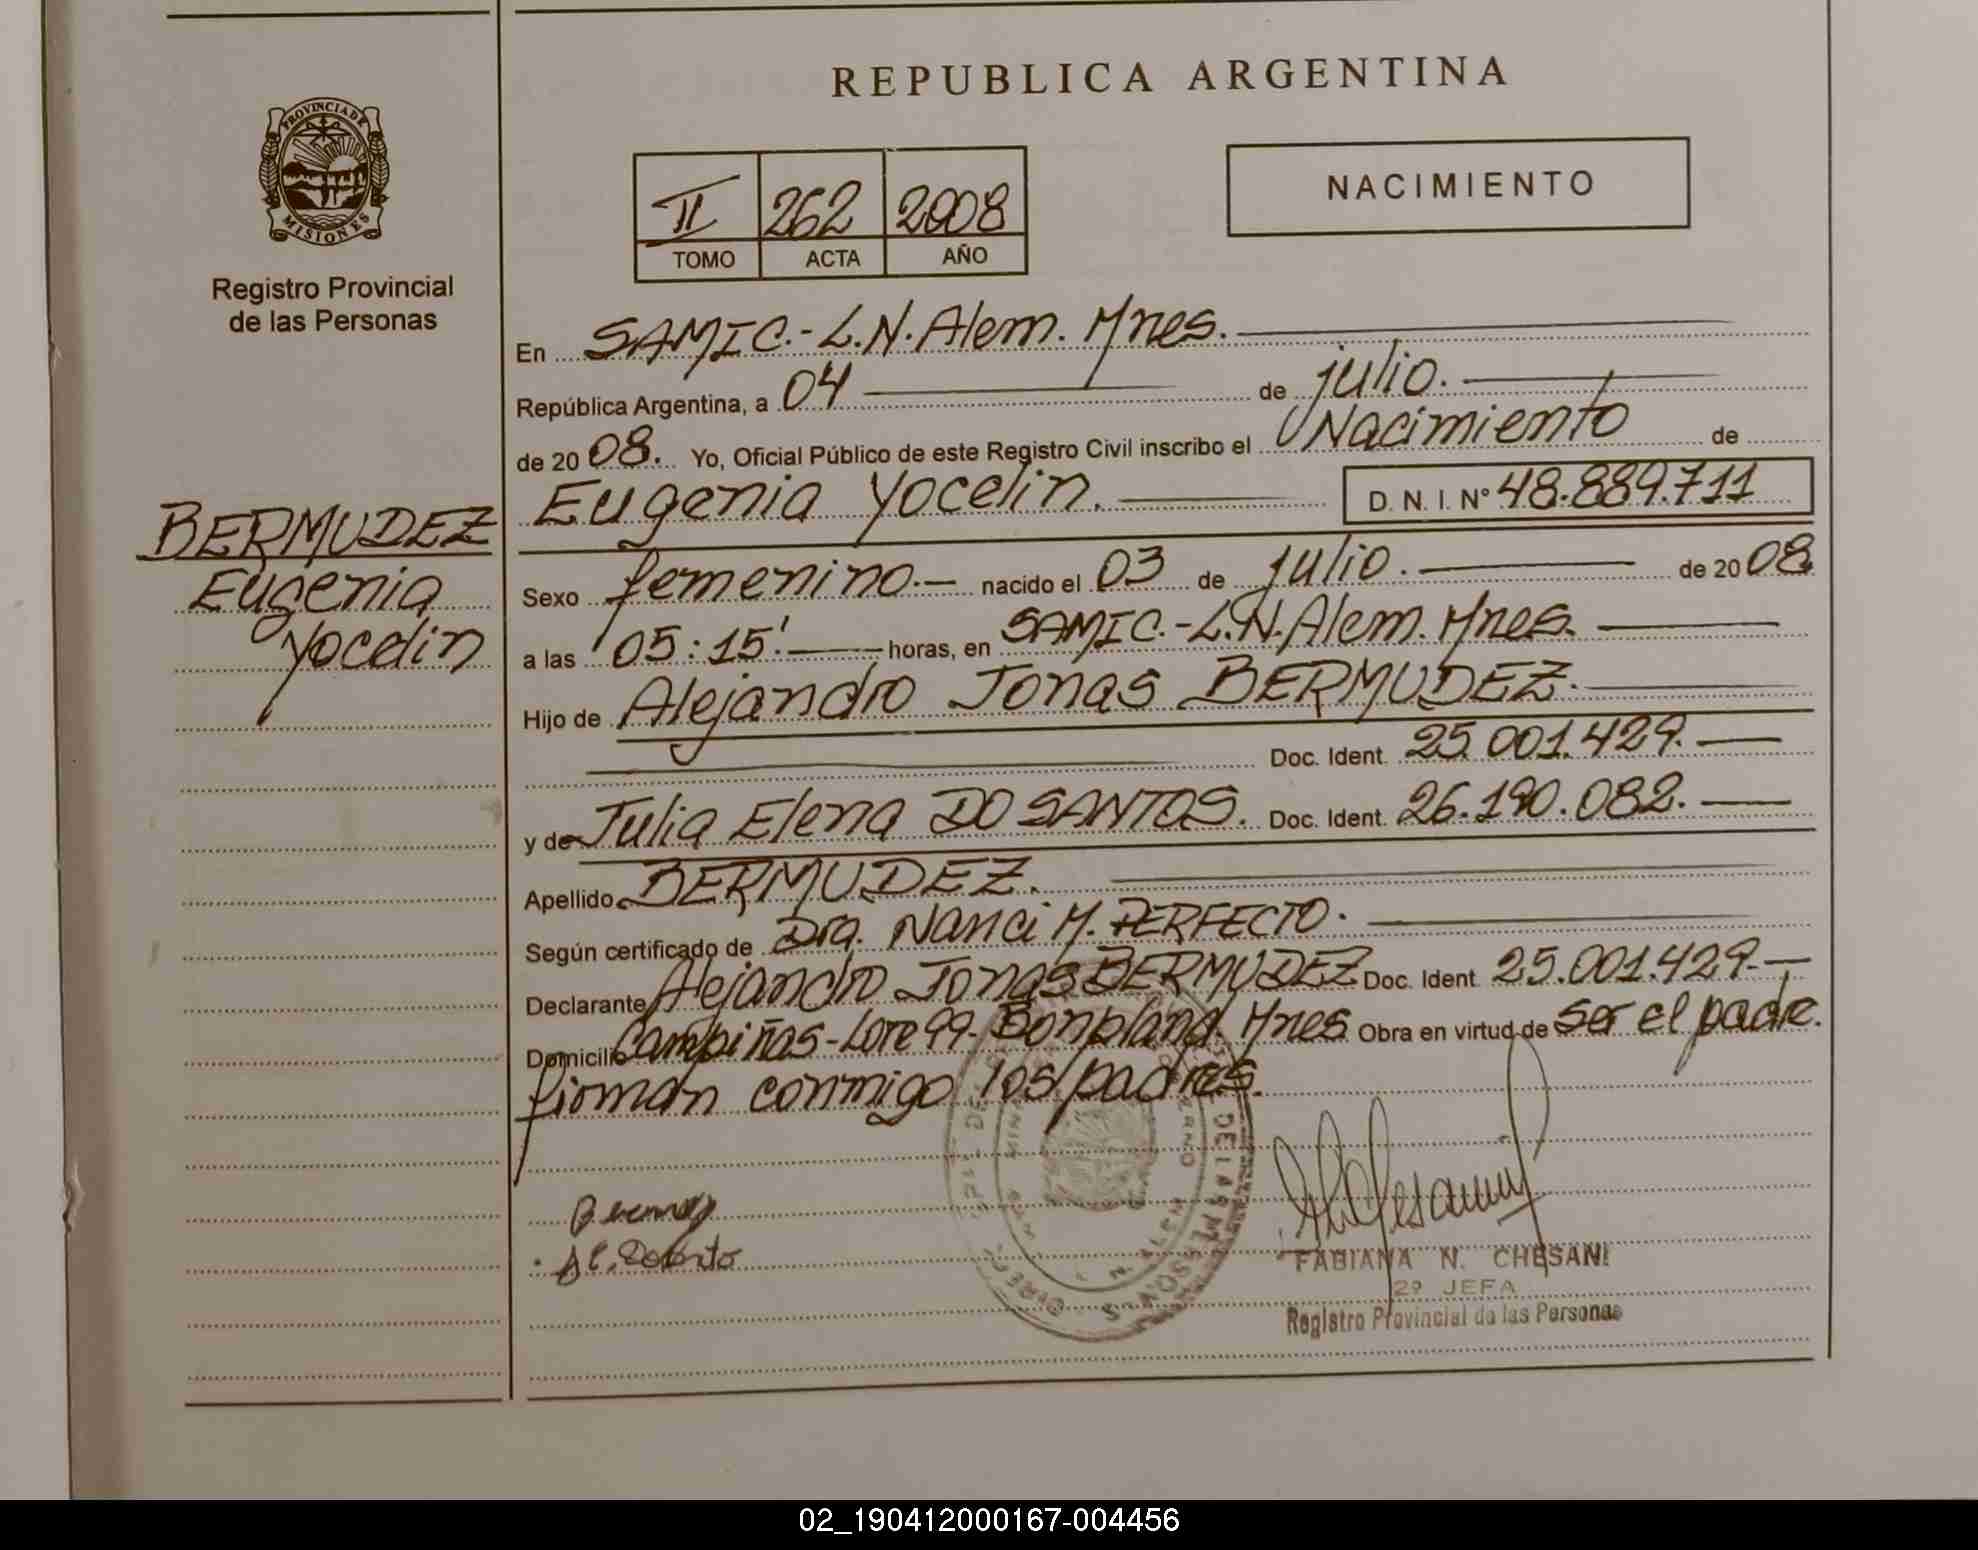 REPUBLICA ARGENTINA
PROVINCIA DE
MISIONES
Registro Provincial
de las Personas
II 262 2008
TOMO ACTA AÑO
NACIMIENTO
BERMUDEZ
Eugenia
Yocelin
En SAMIC.-L.N.Alem. Mnes.
República Argentina, a 04 de julio.
de 2008. Yo, Oficial Público de este Registro Civil inscribo el Nacimiento de
Eugenia Yocelin. D. N. I. N° 48.889.711
Sexo femenino.- nacido el 03 de julio. de 2008
a las 05:15'. horas, en SAMIC.-L.N.Alem. Mnes.
Hijo de Alejandro Jonas BERMUDEZ.
Doc. Ident. 25.001.429.
y de Julia Elena DO SANTOS. Doc. Ident. 26.190.082.
Apellido BERMUDEZ.
Según certificado de Dra. Nanci M. PERFECTO.
Declarante Alejandro Jonas BERMUDEZ Doc. Ident. 25.001.429.-
Domicilio Campiñas-Lote 99. Bonpland. Mnes Obra en virtud de ser el padre.
firman conmigo los padres.
DE LAS PERSONAS
FABIANA N. CHESANI
2° JEFA
Registro Provincial de las Personas
02_190412000167-004456